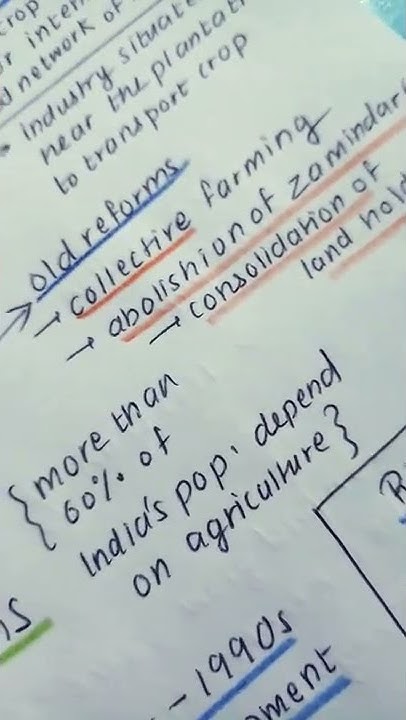 crop
r inter
d network of
• industry situate
near the plantat
to transport crop
old reforms
→ collective farming
→ abolishion of zamindar
→ consolidation of
land hold
{ more than
60% of
India's pop. depend
on agriculture }
- 1990s